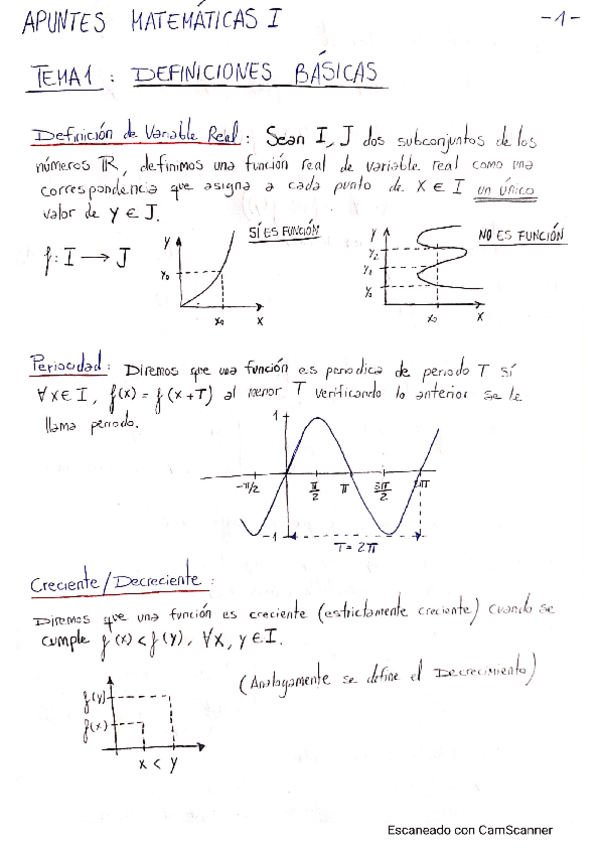 APUNTES MATEMÁTICAS I -1-
TEMA 1: DEFINICIONES BÁSICAS
Definición de Variable Real: Sean I, J dos subconjuntos de los
números ℝ, definimos una función real de variable real como una
correspondencia que asigna a cada punto de x ∈ I un único
valor de y ∈ J.
f: I → J
y SÍ ES FUNCIÓN
y₀
x₀ x
y NO ES FUNCIÓN
y₂
y₁
y₀
x₀ x
Periocidad: Diremos que una función es periodica de periodo T sí
∀x ∈ I, f(x) = f(x+T) al menor T verificando lo anterior se le
llama periodo.
1
-π/2 π/2 π 3π/2 2π
-1
T = 2π
Creciente/Decreciente:
Diremos que una función es creciente (estrictamente creciente) cuando se
cumple f(x) < f(y), ∀x, y ∈ I.
(Analogamente se define el Decrecimiento)
f(y)
f(x)
x < y
Escaneado con CamScanner